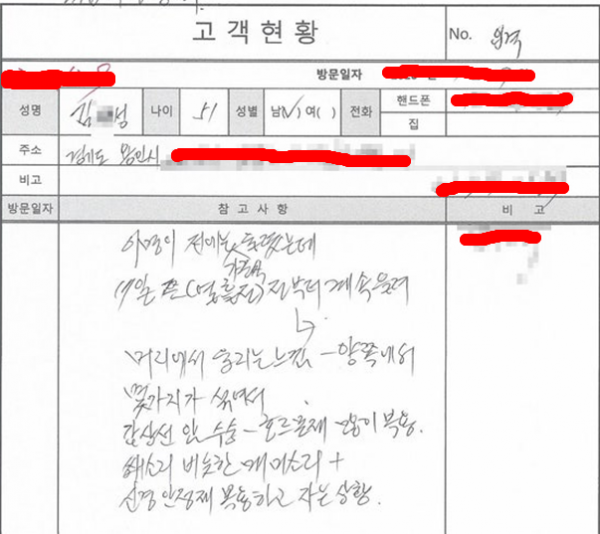 고객현황
No. 원격
방문일자
성명 김 성 나이 51 성별 남(√) 여( ) 전화 핸드폰
집
주소 경기도 용인시
비고
방문일자 참고사항 비고
이명이 전에는 들렸는데
가끔씩
일 전(명절전)부터 계속 들려
머리에서 울리는 느낌 - 양쪽에서
몇가지가 섞여서
갑상선 암 수술 - 호르몬제 많이 복용.
쇠소리 비슷한 매미소리 +
신경안정제 복용하고 자는 상황.